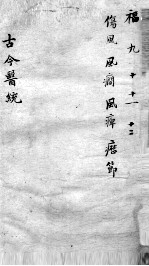 福 九 十 十一 十二
傷風 風癎 風痺 㾮節
古今醫統